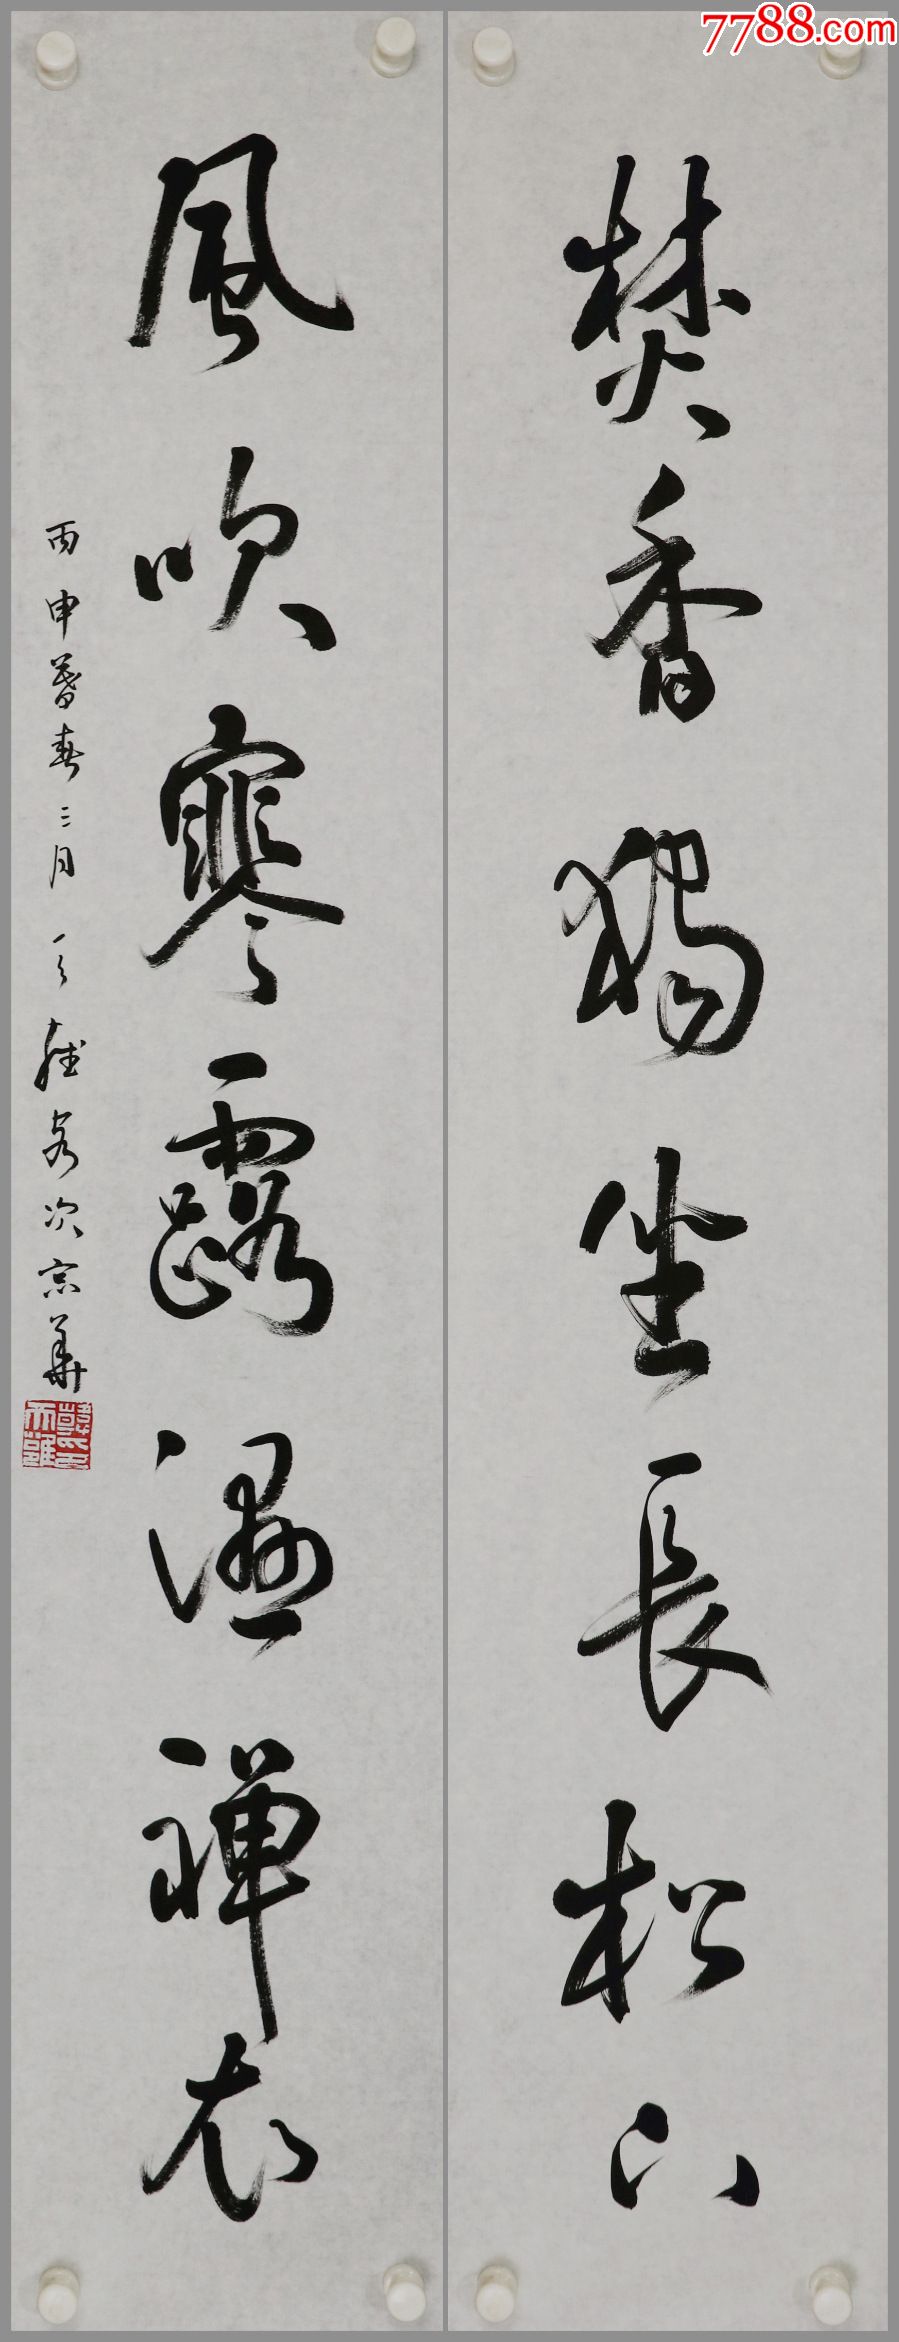 7788.com
焚香獨坐長松下
風吹寒露濕禪衣
丙申暮春三月 於 次宗華